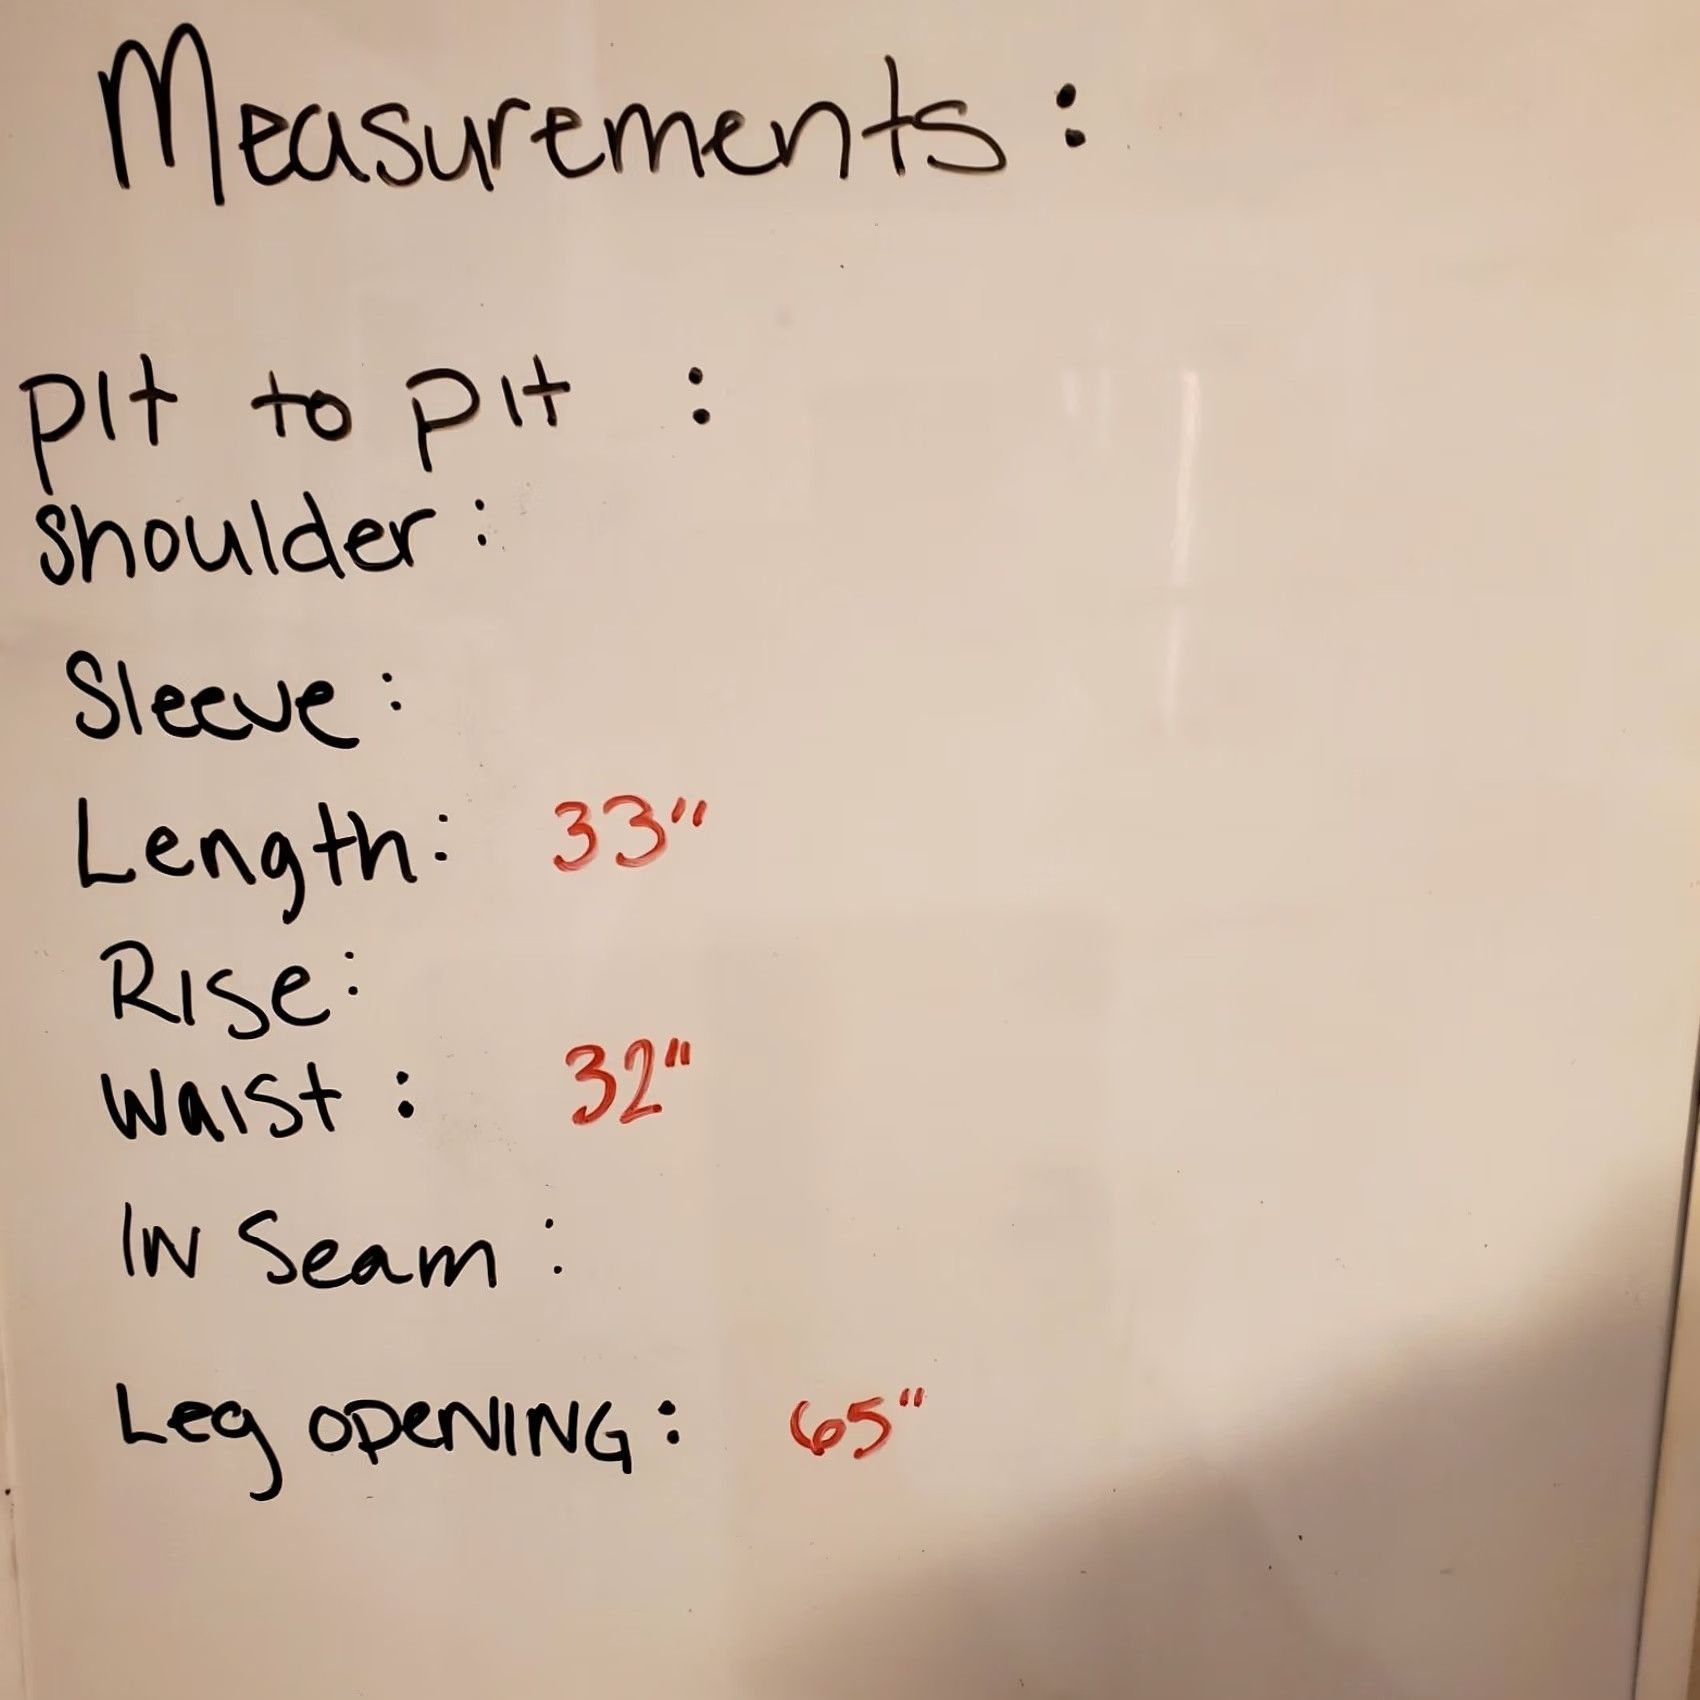 Measurements :
pit to pit :
shoulder :
Sleeve :
Length : 33"
Rise :
Waist : 32"
IN Seam :
Leg OPENING : 65"